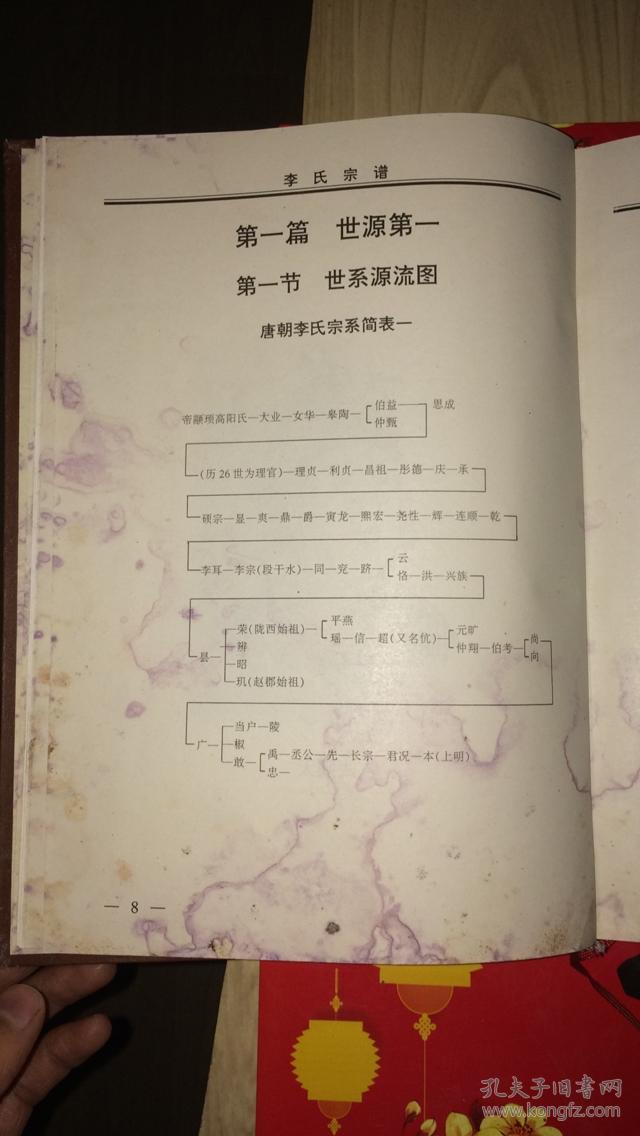 李氏宗谱
第一篇 世源第一
第一节 世系源流图
唐朝李氏宗系简表一
伯益— 恩成
帝颛顼高阳氏—大业—女华—皋陶—
仲甄
(历26世为理官)—理贞—利贞—昌祖—彤德—庆—承
硕宗—显—爽—鼎—爵—寅龙—熙宏—尧性—辉—连顺—乾
云
李耳—李宗(段干水)—同—兖—跻—
恪—洪—兴族
平燕
荣(陇西始祖)—
元旷
瑶—信—超(又名伉)—
尚
仲翔—伯考—
辨
向
昙—
昭
玑(赵郡始祖)
当户—陵
广—
椒
禹—丞公—先—长宗—君况—本(上明)
敢—
忠—
— 8 —
孔夫子旧书网
www.kongfz.com